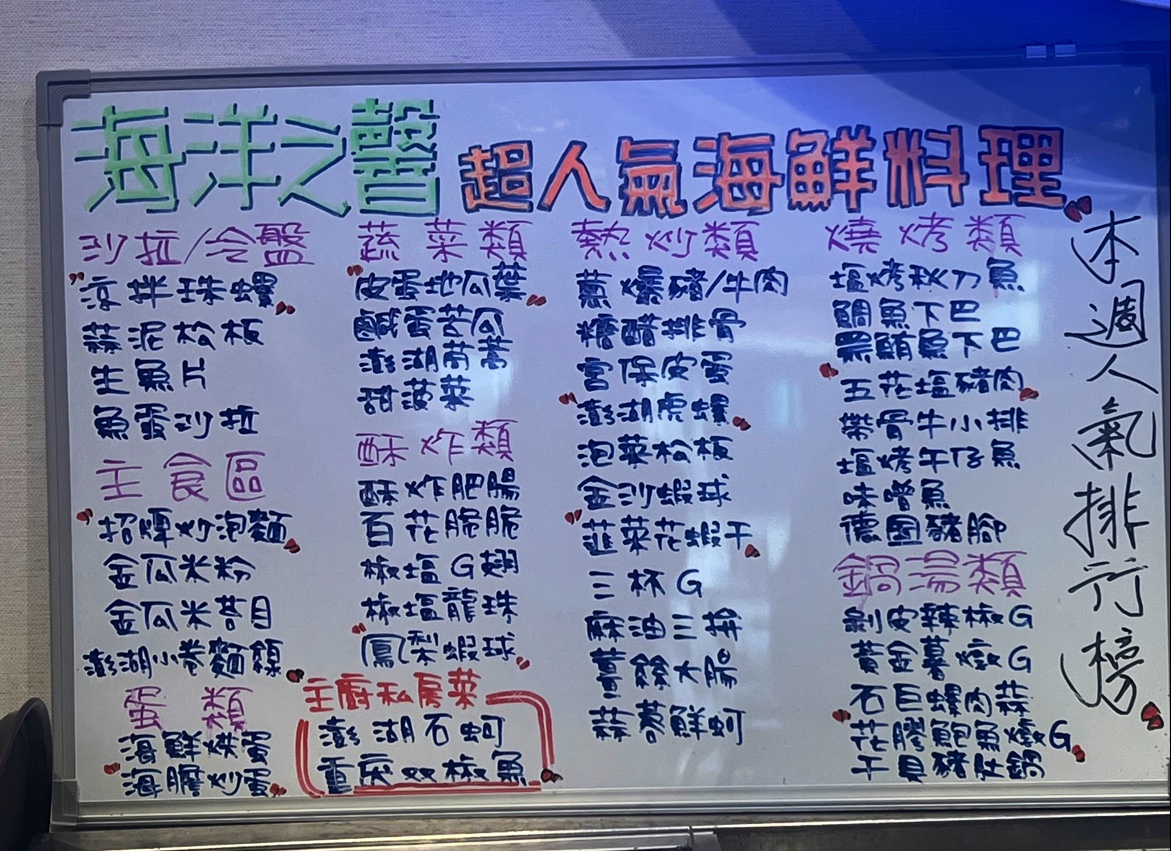 海洋之馨 超人氣海鮮料理
沙拉/冷盤
涼拌珠螺
蒜泥松板
生魚片
魚蛋沙拉
主食區
招牌炒泡麵
金瓜米粉
金瓜米苔目
澎湖小卷麵線
蛋類
海鮮烘蛋
海膽炒蛋
蔬菜類
皮蛋地瓜葉
鹹蛋苦瓜
澎湖茼蒿
甜菠菜
酥炸類
酥炸肥腸
百花脆脆
椒塩G翅
椒塩龍珠
鳳梨蝦球
主廚私房菜
澎湖石蚵
重慶双椒魚
熱炒類
蔥爆豬/牛肉
糖醋排骨
宮保皮蛋
澎湖虎螺
泡菜松板
金沙蝦球
韮菜花蝦干
三杯G
麻油三拚
薑絲大腸
蒜蓉鮮蚵
燒烤類
塩烤秋刀魚
鯛魚下巴
黑鮪魚下巴
五花塩豬肉
帶骨牛小排
塩烤午仔魚
味噌魚
德國豬腳
鍋湯類
剝皮辣椒G
黃金蕈燉G
石巨螺肉蒜
花膠鮑魚燉G
干貝豬肚鍋
本週人氣排行榜